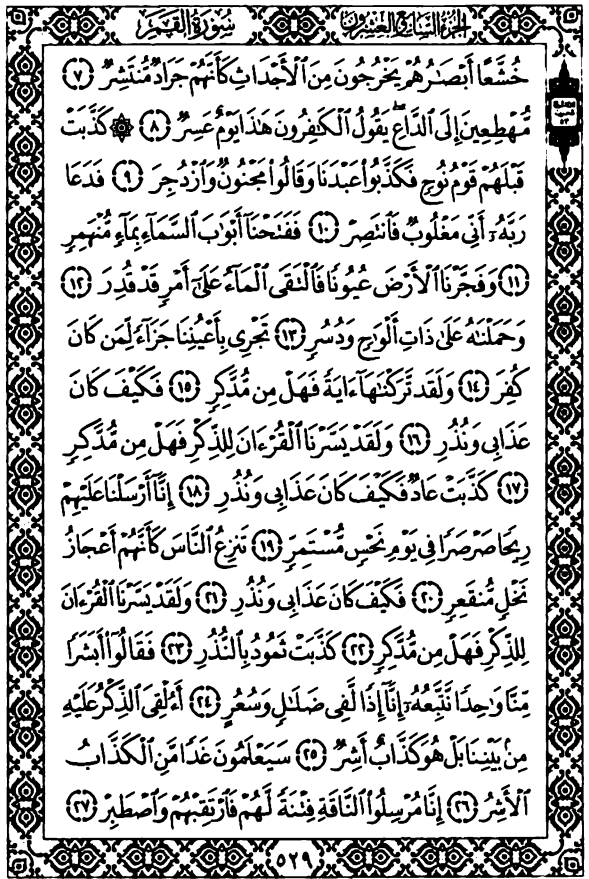 الجزء السابع والعشرون
سورة القمر
خُشَّعًا أَبْصَٰرُهُمْ يَخْرُجُونَ مِنَ ٱلْأَجْدَاثِ كَأَنَّهُمْ جَرَادٌ مُّنتَشِرٌ ﴿٧﴾
مُّهْطِعِينَ إِلَى ٱلدَّاعِ ۖ يَقُولُ ٱلْكَٰفِرُونَ هَٰذَا يَوْمٌ عَسِرٌ ﴿٨﴾ ۞ كَذَّبَتْ
قَبْلَهُمْ قَوْمُ نُوحٍ فَكَذَّبُوا۟ عَبْدَنَا وَقَالُوا۟ مَجْنُونٌ وَٱزْدُجِرَ ﴿٩﴾ فَدَعَا
رَبَّهُۥٓ أَنِّى مَغْلُوبٌ فَٱنتَصِرْ ﴿١٠﴾ فَفَتَحْنَآ أَبْوَٰبَ ٱلسَّمَآءِ بِمَآءٍ مُّنْهَمِرٍ
﴿١١﴾ وَفَجَّرْنَا ٱلْأَرْضَ عُيُونًا فَٱلْتَقَى ٱلْمَآءُ عَلَىٰٓ أَمْرٍ قَدْ قُدِرَ ﴿١٢﴾
وَحَمَلْنَٰهُ عَلَىٰ ذَاتِ أَلْوَٰحٍ وَدُسُرٍ ﴿١٣﴾ تَجْرِى بِأَعْيُنِنَا جَزَآءً لِّمَن كَانَ
كُفِرَ ﴿١٤﴾ وَلَقَد تَّرَكْنَٰهَآ ءَايَةً فَهَلْ مِن مُّدَّكِرٍ ﴿١٥﴾ فَكَيْفَ كَانَ
عَذَابِى وَنُذُرِ ﴿١٦﴾ وَلَقَدْ يَسَّرْنَا ٱلْقُرْءَانَ لِلذِّكْرِ فَهَلْ مِن مُّدَّكِرٍ
﴿١٧﴾ كَذَّبَتْ عَادٌ فَكَيْفَ كَانَ عَذَابِى وَنُذُرِ ﴿١٨﴾ إِنَّآ أَرْسَلْنَا عَلَيْهِمْ
رِيحًا صَرْصَرًا فِى يَوْمِ نَحْسٍ مُّسْتَمِرٍّ ﴿١٩﴾ تَنزِعُ ٱلنَّاسَ كَأَنَّهُمْ أَعْجَازُ
نَخْلٍ مُّنقَعِرٍ ﴿٢٠﴾ فَكَيْفَ كَانَ عَذَابِى وَنُذُرِ ﴿٢١﴾ وَلَقَدْ يَسَّرْنَا ٱلْقُرْءَانَ
لِلذِّكْرِ فَهَلْ مِن مُّدَّكِرٍ ﴿٢٢﴾ كَذَّبَتْ ثَمُودُ بِٱلنُّذُرِ ﴿٢٣﴾ فَقَالُوٓا۟ أَبَشَرًا
مِّنَّا وَٰحِدًا نَّتَّبِعُهُۥٓ إِنَّآ إِذًا لَّفِى ضَلَٰلٍ وَسُعُرٍ ﴿٢٤﴾ أَءُلْقِىَ ٱلذِّكْرُ عَلَيْهِ
مِنۢ بَيْنِنَا بَلْ هُوَ كَذَّابٌ أَشِرٌ ﴿٢٥﴾ سَيَعْلَمُونَ غَدًا مَّنِ ٱلْكَذَّابُ
ٱلْأَشِرُ ﴿٢٦﴾ إِنَّا مُرْسِلُوا۟ ٱلنَّاقَةِ فِتْنَةً لَّهُمْ فَٱرْتَقِبْهُمْ وَٱصْطَبِرْ ﴿٢٧﴾
٥٢٩